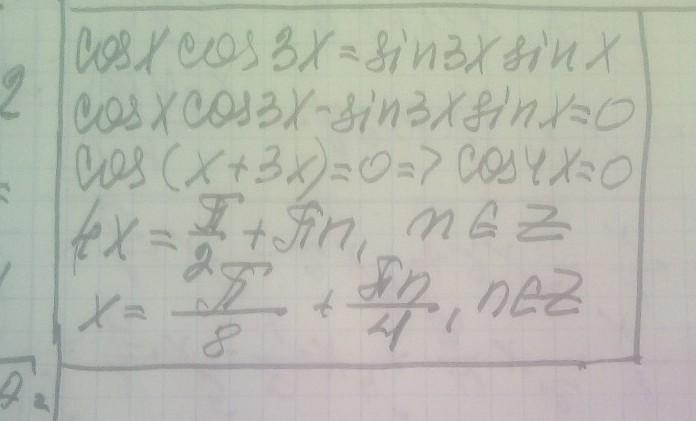 cosx cos3x=sin3x sinx
cosx cos3x-sin3x sinx=0
cos(x+3x)=0=> cos4x=0
4x=π/2+πn, n∈Z
x=π/8+πn/4, n∈Z
2